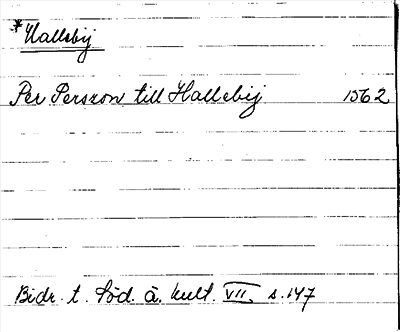 *Hallebij
Per Persson till Hallebij 1562
Bidr. t. Söd. ä. kult. VII. s. 147